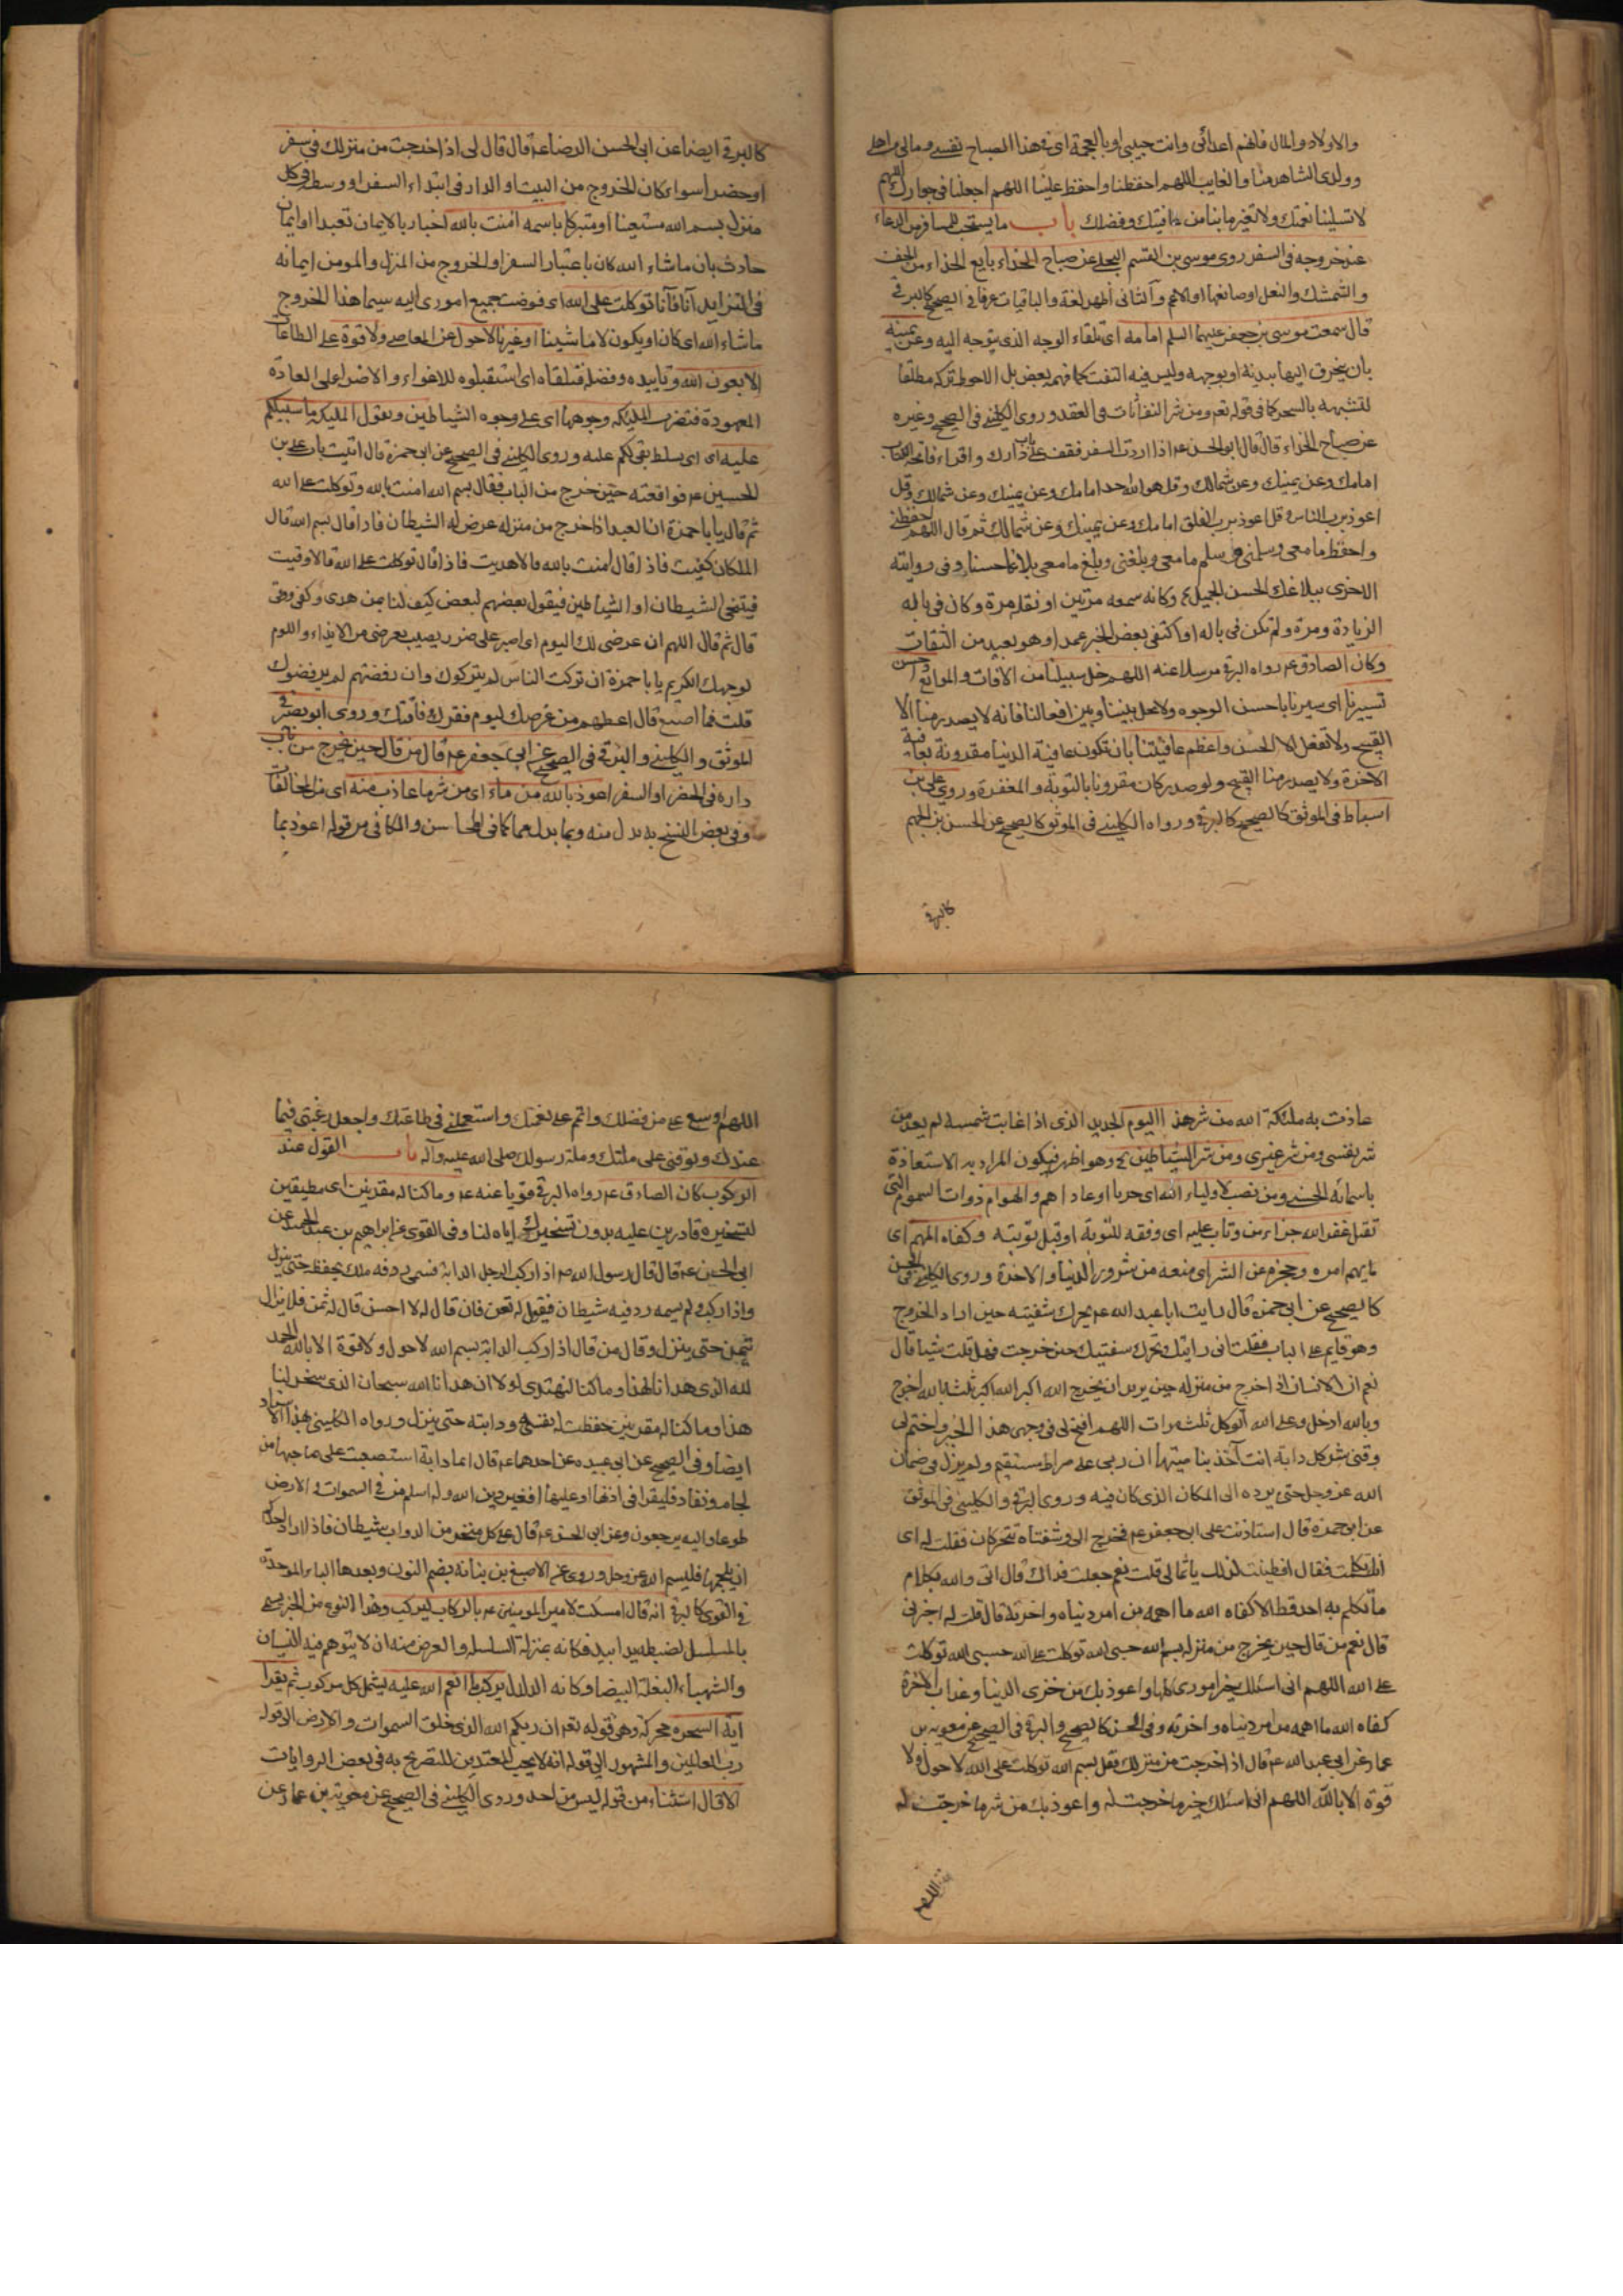 والاولاد والمال فانهم اعدائى وانت حبيبى او بالعجمة اى فى هذا الصباح نفسى ومالى واهلى
وولدى الشاهد منا والغايب اللهم احفظنا واحفظ علينا اللهم اجعلنا فى جوارك اللهم
لا تسلبنا نعمتك ولا تغير ما بنا من عافيتك وفضلك باب ما يستحب للمسافر من الدعاء
عند خروجه فى السفر روى موسى بن القسم البجلى عن صباح الحذاء بايع الحذاء من الخف
والتمشك والنعل او صانعها او الاعم والثانى اظهر لغة والباقيات عرفا فى الصحيح كالبرقى
قال سمعت موسى بن جعفر عليهما السلم امامه اى تلقاء الوجه الذى يتوجه اليه وعن يمينه
بان ينحرف اليها ببدنه او بوجهه وليس فيه التفت كما فهمه بعض بل الاحوط تركه مطلقا
لتشبهه بالسحر كما فى قوله تعالى ومن شر النفاثات فى العقد وروى الكلينى فى الصحيح وغيره
عن صباح الحذاء قال قال ابو الحسن عم اذا اردت السفر فقف على باب دارك واقراء فاتحة الكتاب
امامك وعن يمينك وعن شمالك وقل هو الله احد امامك وعن يمينك وعن شمالك وقل
اعوذ برب الناس وقل اعوذ برب الفلق امامك وعن يمينك وعن شمالك ثم قال اللهم احفظنى
واحفظ ما معى وسلمنى وسلم ما معى وبلغنى وبلغ ما معى بلاغا حسنا وفى روايته
الاخرى ببلاغك الحسن الجميل وكانه سمعه مرتين او نقله مرة وكان فى باله
الزيادة ومرة ولم تكن فى باله او اكتفى ببعض الخبر عمدا وهو بعيد من الثقات
وكان الصادق عم رواه البرقى مرسلا عنه اللهم خل سبيلنا من الافات والموانع واحسن
تسييرنا اى سيرنا باحسن الوجوه ولا تحل بيننا وبين افعالنا فانه لا يصدر منا الا
القبيح ولا تفعل الا الحسن واعظم عافيتنا بان تكون عافية الدنيا مقرونة بعافية
الاخرة ولا يصدر منا القبيح ولو صدر كان مقرونا بالتوبة والمغفرة وروى على بن
اسباط فى الموثق كالصحيح كالبرقى ورواه الكلينى فى الموثق كالصحيح عن الحسن بن الجهم
كالبرقى
كالبرقى ايضا عن ابى الحسن الرضا عم قال قال لى اذا خرجت من منزلك فى سفر
او حضر اسواء كان الخروج من البيت او الدار فى ابتداء السفر او وسطه فى كل
منزل بسم الله مستعينا او متبركا باسمه امنت بالله اخبار بالايمان تعبدا او ايمان
حادث بان ما شاء الله كان باعتبار السفر او الخروج من المنزل والمومن ايمانه
فى التزايد آنا فآنا توكلت على الله اى فوضت جميع امورى اليه سيما هذا الخروج
ما شاء الله اى كان او يكون لا ما شئنا او غيرنا لا حول عن المعاصى ولا قوة على الطاعات
الا بعون الله وتاييده وفضله فتلقاه اى استقبلوه للاغواء والاضرار على العادة
المعهودة فتضرب المليكه وجوهها اى على وجوه الشياطين وتقول المليكه ما سبيلكم
عليه اى اى تسلط بقى لكم عليه وروى الكلينى فى الصحيح عن ابى حمزة قال اتيت باب على بن
الحسين عم فوافقته حين خرج من الباب فقال بسم الله امنت بالله وتوكلت على الله
ثم قال يا باحمزة ان العبد اذا خرج من منزله عرض له الشيطان فاذا قال بسم الله قال
الملكان كفيت فاذا قال امنت بالله قالا هديت فاذا قال توكلت على الله قالا وقيت
فيتنحى الشيطان او الشياطين فيقول بعضهم لبعض كيف لنا بمن هدى وكفى ووقى
قال ثم قال اللهم ان عرضى لك اليوم اى اصبر على ضرر يصيب بعرضى من الايذاء واللوم
لوجهك الكريم يا باحمزة ان تركت الناس لم يتركوك وان رفضتهم لم يرفضوك
قلت فما اصنع قال اعطهم من عرضك ليوم فقرك وفاقتك وروى ابو بصير فى
الموثق والكلينى والبرقى فى الصحيح عن ابى جعفر عم قال من قال حين يخرج من باب
داره فى الحضر او السفر اعوذ بالله من ماء اى من شر ما عاذت منه اى من المخالفات
وفى بعض النسخ به بدل منه وبما بدل مما كما فى المحاسن والكافى من قوله اعوذ بما
عاذت به ملئكة الله من شر هذا اليوم الجديد الذى اذا غابت شمسه لم يعد من
شر نفسى ومن شر غيرى ومن شر الشياطين وهو اظهر فيكون المراد به الاستعاذة
باسمائه الحسنى ومن نصب لاولياء الله اى حربا او عاداهم والهوام ذوات السموم التى
تقتل غفر الله جزاء من وتاب عليه اى وفقه للتوبة او قبل توبته وكفاه المهم اى
ما يهم امره وحجزه عن الشر اى منعه من شرور الدنيا والاخرة وروى الكلينى فى الحسن
كالصحيح عن ابى حمزه قال رايت ابا عبد الله عم يحرك شفتيه حين اراد الخروج
وهو قايم على الباب فقلت انى رايتك تحرك شفتيك حين خرجت فهل قلت شيئا قال
نعم ان الانسان اذا خرج من منزله حين يريد ان يخرج الله اكبر الله اكبر ثلثا بالله اخرج
وبالله ادخل وعلى الله اتوكل ثلث مرات اللهم افتح لى فى وجهى هذا الخير واختم لى
وقنى شر كل دابة انت آخذ بناصيتها ان ربى على صراط مستقيم ولم يزل فى ضمان
الله عز وجل حتى يرده الى المكان الذى كان فيه وروى البرقى والكلينى فى الموثق
عن ابى حمزه قال استاذنت على ابى جعفر عم فخرج الى وشفتاه تتحركان فقلت له اى
فقال افطنت لذلك يا ثمالى قلت نعم جعلت فداك قال انى والله بكلام
ما تكلم به احد قط الا كفاه الله ما اهمه من امر دنياه واخرته قال قلت له اخبرنى
قال نعم من قال حين يخرج من منزله بسم الله حسبى الله توكلت على الله حسبى الله توكلت
على الله اللهم انى اسئلك خير امورى كلها واعوذ بك من خزى الدنيا وعذاب الاخرة
كفاه الله ما اهمه من امر دنياه واخرته وفى الحسن كالصحيح والبرقى فى الصحيح عن معوية بن
عمار عن ابى عبد الله عم قال اذا خرجت من منزلك فقل بسم الله توكلت على الله لا حول ولا
قوة الا بالله اللهم انى اسئلك خير ما خرجت له واعوذ بك من شر ما خرجت له
اللهم
اللهم اوسع على من فضلك واتم على نعمتك واستعملنى فى طاعتك واجعل رغبتى فيما
عندك وتوفنى على ملتك وملة رسولك صلى الله عليه وآله باب القول عند
الركوب كان الصادق عم رواه البرقى قويا عنه عم وما كنا له مقرنين اى مطيقين
لتسخيره قادرين عليه بدون تسخيرك اياه لنا وفى القوى عن ابراهيم بن عبد الحميد عن
ابى الحسن عم قال قال رسول الله ص اذا ركب الرجل الدابة فسمى ردفه ملك يحفظه حتى ينزل
واذا ركب ولم يسمه ردفه شيطان فيقول له تغن فان قال له لا احسن قال له تمن فلا يزال
يتمنى حتى ينزل وقال من قال اذا ركب الدابة بسم الله لا حول ولا قوة الا بالله الحمد
لله الذى هدانا لهذا وما كنا لنهتدى لولا ان هدانا الله سبحان الذى سخر لنا
هذا وما كنا له مقرنين حفظت له نفسه ودابته حتى ينزل ورواه الكلينى بهذا الاسناد
ايضا وفى الصحيح عن ابى عبيده عن احدهما عم قال ايما دابة استصعبت على صاحبها من
لجام ونفار فليقرا فى اذنها او عليها افغير دين الله يبغون وله اسلم من فى السموات والارض
طوعا وكرها واليه يرجعون وعن ابى الحسن عم قال على كل منخر من الدواب شيطان فاذا اراد احدكم
ان يلجمها فليسم الله عز وجل وروى عن الاصبغ بن نباتة بضم النون وبعدها الباء الموحدة
فى القوى كالبرقى انه قال امسكت لامير المومنين عم بالركاب ليركب وهذا النوع من الخبر يسمى
بالمسلسل لضبطه يدا بيد فكانه بمنزلة السلسلة والغرض منه ان لا يتوهم فيه النسيان
والشهباء البغلة البيضا وكانه الدلدل يركب ما انعم الله عليه يشمل كل مركوب ثم يقرا
اية السخره محركة وهى قوله تعالى ان ربكم الله الذى خلق السموات والارض الى قوله
رب العالمين والمشهور الى قوله انه لا يحب المعتدين للتصريح به فى بعض الروايات
الا قال استثناء من قوله ليس من احد وروى الكلينى فى الصحيح عن معوية بن عمار عن